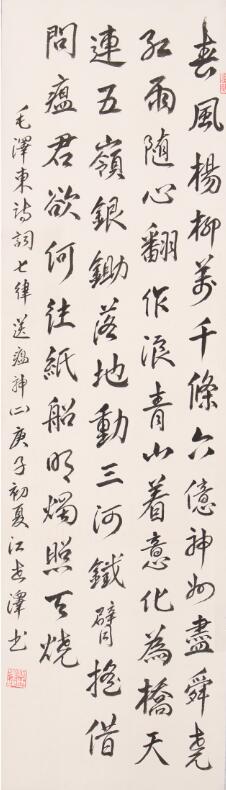 春風楊柳萬千條六億神州盡舜堯
紅雨隨心翻作浪青山着意化為橋天
連五嶺銀鋤落地動三河鐵臂搖借
問瘟君欲何往紙船明燭照天燒
毛澤東詩詞七律送瘟神二庚子初夏江志澤书